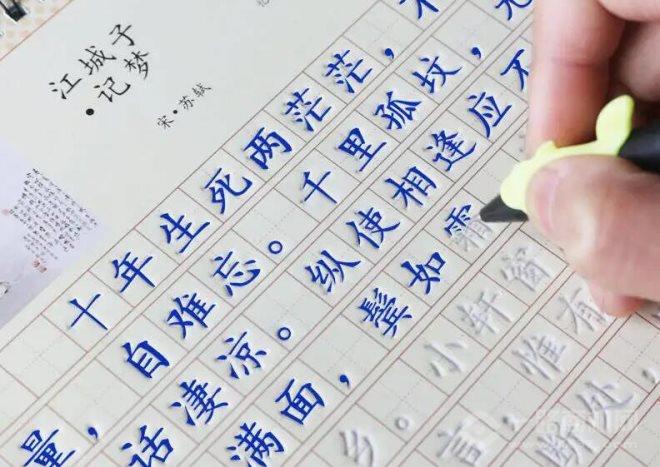 江城子
·记梦
宋·苏轼
十年生死两茫茫，不
量，自难忘。千里孤坟，无
话凄凉。纵使相逢应不
满面，鬓如霜
乡。小轩窗
言，惟有
断处，